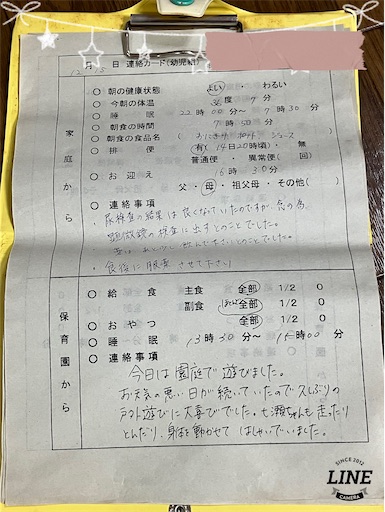 12月5日 連絡カード(幼児組)
家庭から
○ 朝の健康状態 よい ・ わるい
○ 今朝の体温 度 分
○ 睡眠 22時00分〜7時30分
○ 朝食の時間 7時50分
○ 朝食の食品名 ( おにぎり ジュース )
○ 排便 (有)(14日20時頃)・無
普通便 ・ 異常便( 回)
○ お迎え 16時30分
父・母・祖父母・その他( )
○ 連絡事項
・尿検査の結果は良くなっていたのですが、念の為、
顕微鏡の検査に出すとのことでした。
とのことでした。
・食後に服薬させて下さい
保育園から
○ 給食 主食 全部 1/2 0
副食 ほとんど全部 1/2 0
○ おやつ 全部 1/2 0
○ 睡眠 13時30分〜15時00分
○ 連絡事項
今日は園庭で遊びました。
お天気の悪い日が続いていたので久しぶりの
戸外遊びに大喜びでした。七瀬ちゃんも走ったり
とんだり、身体を動かせてはしゃいでいました。
SINCE 2012
LINE
CAMERA